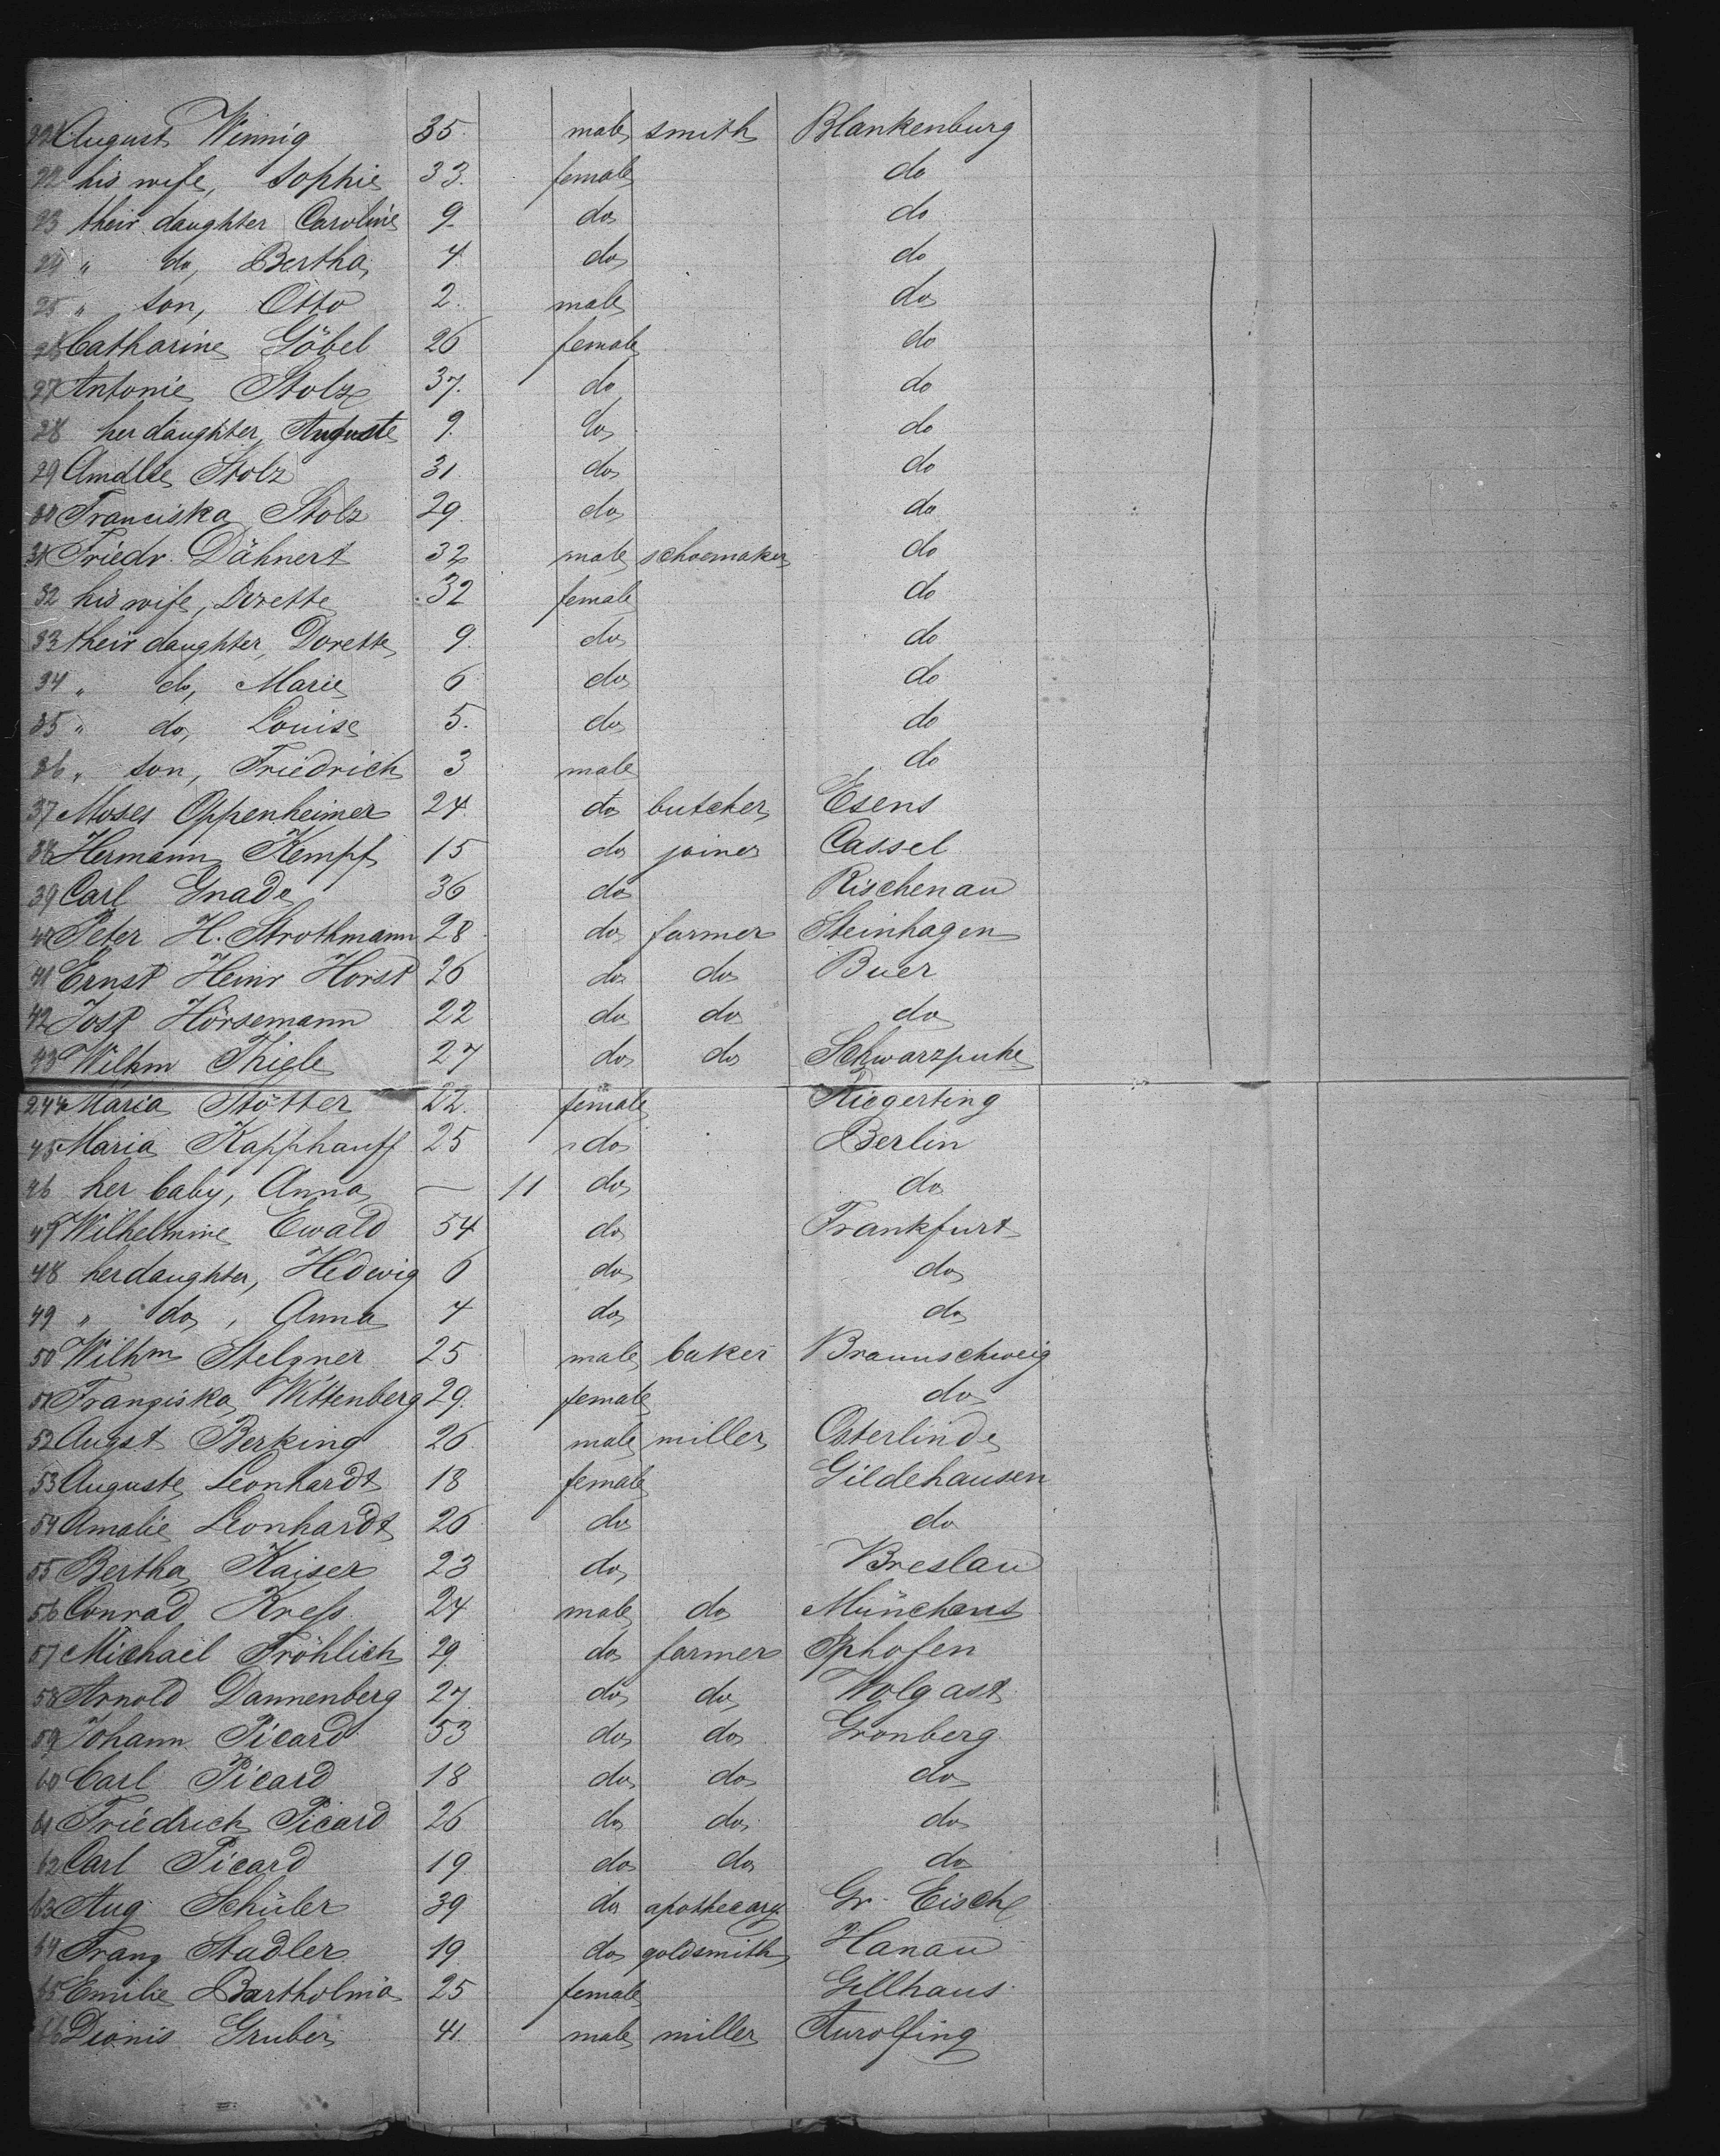 221 August Winnig 35. male smith Blankenburg
22 his wife, Sophie 33. female do
23 their daughter Caroline 9. do do
24 " do, Bertha 4 do do
25 " son, Otto 2. male do
26 Catharine Göbel 26 female do
27 Antonie Stolz 37. do do
28 her daughter, Auguste 9. do do
29 Amalie Stolz 31 do do
30 Franciska Stolz 29 do do
31 Friedr. Dähnert 32 male schoemaker do
32 his wife, Dorette 32 female do
33 their daughter, Dorette 9. do do
34 " do, Marie 6 do do
35 " do, Louise 5. do do
36 " son, Friedrich 3 male do
37 Moses Oppenheimer 24. do butcher Esens
38 Hermann Kempf 15 do joiner Cassel
39 Carl Gnade 36 do Rischenau
40 Peter H. Strothmann 28 do farmer Steinhagen
41 Ernst Heinr Horst 26 do do Buer
42 Jost Hörsemann 22 do do do
43 Wilhm Thiele 27 do do
244 Maria Stötter 22. female
45 Maria Kapphauff 25 do Berlin
46 her baby, Anna — 11 do do
47 Wilhelmine Ewald 54 do Frankfurt
48 her daughter, Hedwig 6 do do
49 " do, Anna 4 do do
50 Wilhm Stelzner 25 male baker Braunschweig
51 Franziska Wittenberg 29. female do
52 Augst Berking 26 male miller Osterlinde
53 Auguste Leonhardt 18 female Gildehausen
54 Amalie Leonhardt 26 do do
55 Bertha Kaiser 23 do Breslau
56 Conrad Kreſs 24 male do
57 Michael Fröhlich 29. do farmer Iphofen
58 Arnold Dannenberg 27. do do Wolgast
59 Johann Picard 53 do do Gronberg
60 Carl Picard 18 do do do
61 Friedrich Picard 26 do do do
62 Carl Picard 19. do do do
63 Aug Schüler 39 do apothecary Gr.
64 Franz Stadler 19 do goldsmith Hanau
65 Emilie Bartholmä 25 female Gillhaus
66 Dionis Gruber 41. male miller